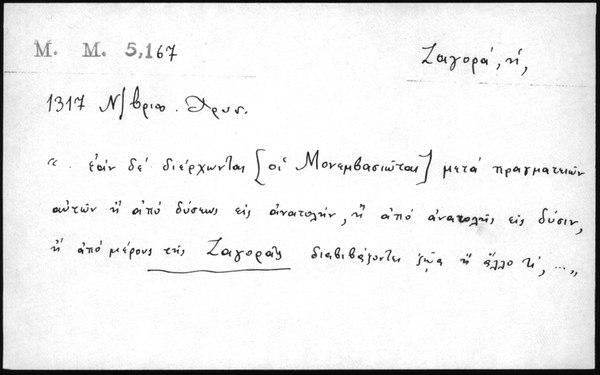 M. M. 5,167
Ζαγορά, ἡ,
1317 Ν/βριο. Χρυσ.
“. ἐάν δέ διέρχωνται [οἱ Μονεμβασιῶται] μετά πραγματειῶν
αὐτῶν ἤ ἀπό δύσεως εἰς ἀνατολήν, ἤ ἀπό ἀνατολῆς εἰς δύσιν,
ἤ ἀπό μέρους τῆς Ζαγορᾶς διαβιβάζοντες ζῷα ἤ ἄλλο τί, ...„